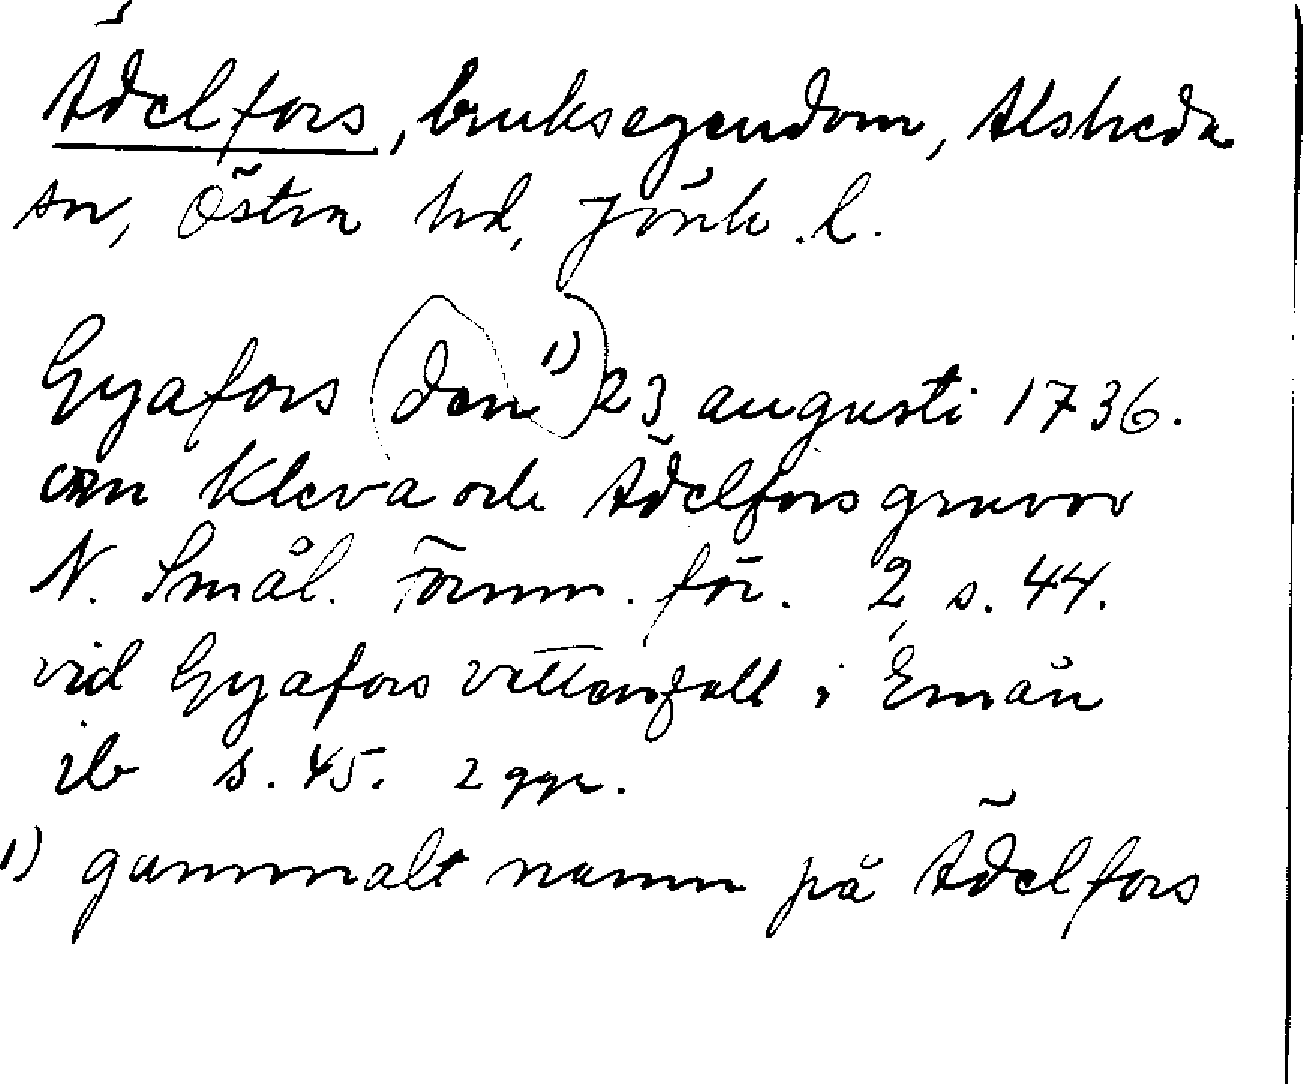 Ädelfors, bruksegendom, Alsheda
sn, Östra hd, Jönk. l.
Gyafors (den 1)) 23 augusti 1736.
om Kleva och Ädelfors gruvor
N. Smål. Fornm. för. 2, s. 44.
vid Gyafors vattenfall i Emån
ib s. 45. 2 ggr.
1) gammalt namn på Ädelfors